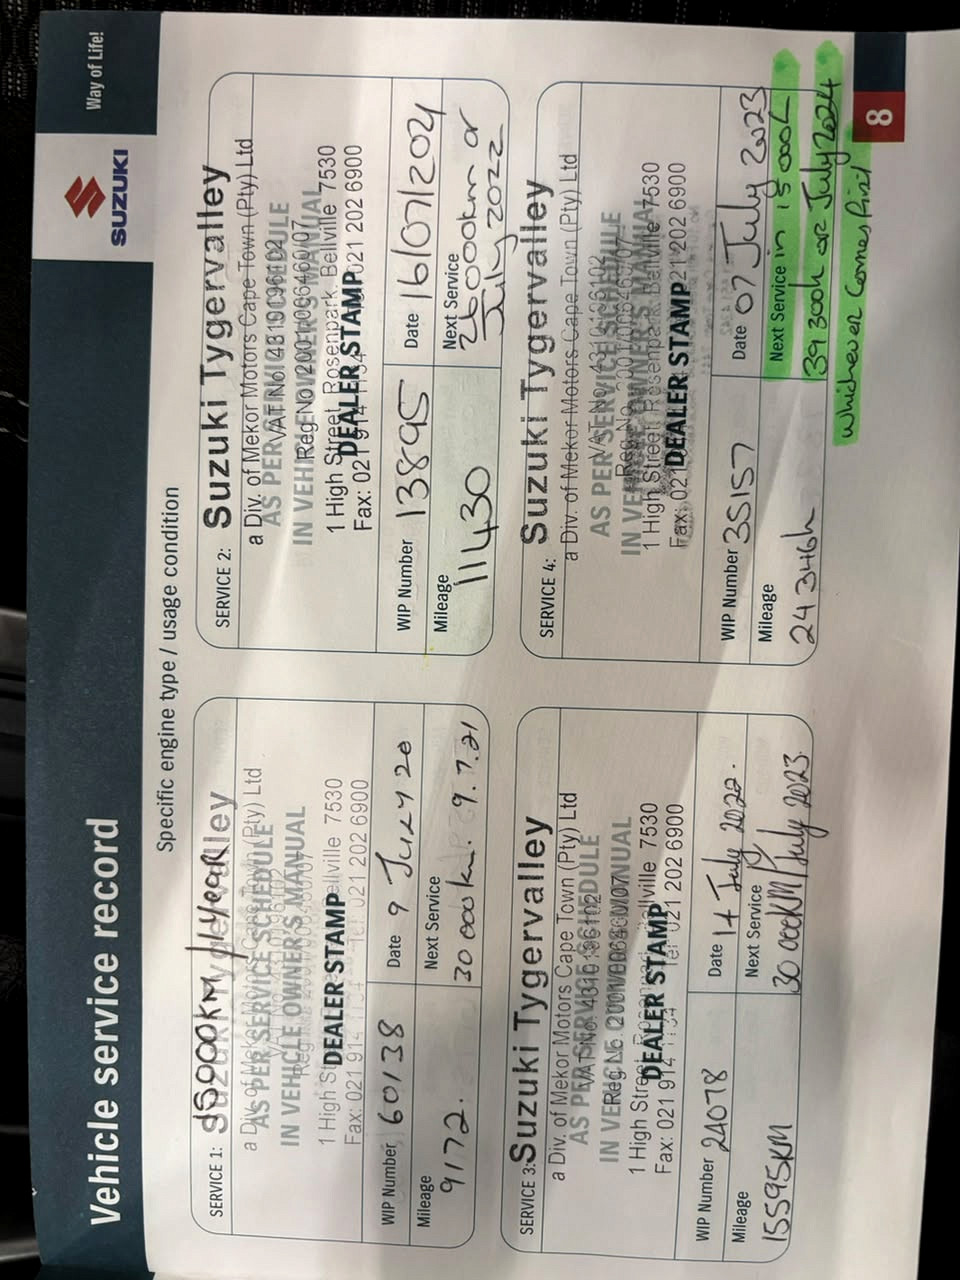 Vehicle service record
SUZUKI
Way of Life!
Specific engine type / usage condition
SERVICE 1:
15000KM/1YEAR
Suzuki Tygervalley
a Div. of Mekor Motors Cape Town (Pty) Ltd
AS PER SERVICE SCHEDULE
IN VEHICLE OWNER'S MANUAL
1 High Street, Bellville 7530
DEALER STAMP
Fax: 021 914 1134 Tel: 021 202 6900
WIP Number 60138
Date 9 JULY 20
Mileage
9172.
Next Service
30 000km. 9.7.21
SERVICE 2:
Suzuki Tygervalley
a Div. of Mekor Motors Cape Town (Pty) Ltd
VAT No. 4310196102
AS PER SERVICE SCHEDULE
Reg No. 2001/006460/07
IN VEHICLE OWNER'S MANUAL
1 High Street, Rosenpark, Bellville 7530
DEALER STAMP
Fax: 021 914 1134 021 202 6900
WIP Number 13895
Date 16/07/2021
Mileage
11430
Next Service
26000km or
July 2022
SERVICE 3:
Suzuki Tygervalley
a Div. of Mekor Motors Cape Town (Pty) Ltd
VAT No. 4310196102
AS PER SERVICE SCHEDULE
Reg No. 2001/006460/07
IN VEHICLE OWNER'S MANUAL
1 High Street, Rosenpark, Bellville 7530
DEALER STAMP
Fax: 021 914 1134 Tel 021 202 6900
WIP Number 24078
Date 14 July 2022.
Mileage
15595KM
Next Service
30 000KM/July 2023
SERVICE 4:
Suzuki Tygervalley
a Div. of Mekor Motors Cape Town (Pty) Ltd
VAT No. 4310196102
AS PER SERVICE SCHEDULE
Reg. No. 2001/006460/07
IN VEHICLE OWNER'S MANUAL
1 High Street, Rosenpark, Bellville 7530
DEALER STAMP
Fax: 021 202 6900
WIP Number 35157
Date 07 July 2023
Mileage
24 346k
Next Service in 15 000k
39 300k or July 2024
whichever comes first
8